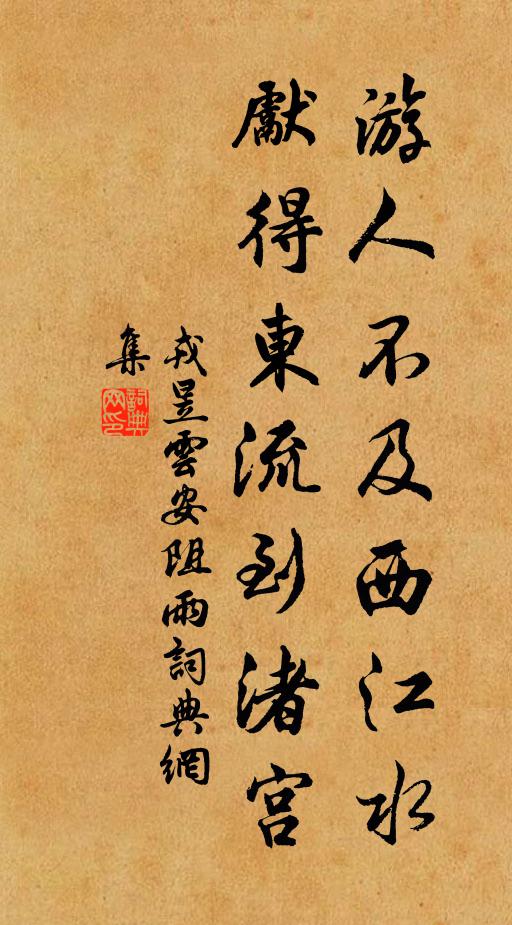 游人不及西江水
獻得東流到渚宮
戎昱雲安阻雨詞典網
集
詞典網印